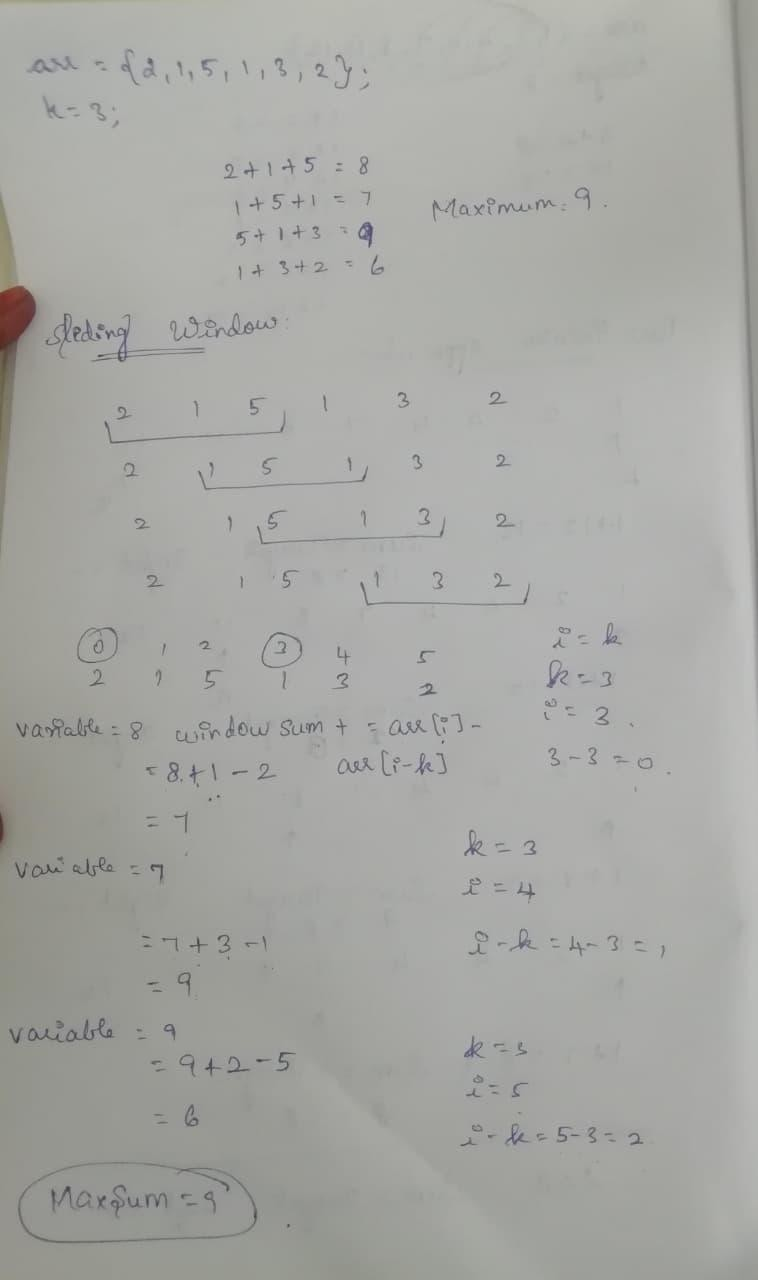 arr = {2, 1, 5, 1, 3, 2};
k = 3;
2 + 1 + 5 = 8
1 + 5 + 1 = 7
5 + 1 + 3 = 9
1 + 3 + 2 = 6
Maximum: 9.
Sleding Window:
2 1 5 1 3 2
2 1 5 1 3 2
2 1 5 1 3 2
2 1 5 1 3 2
0 1 2 3 4 5
2 1 5 1 3 2
i = k
k = 3
i = 3.
3 - 3 = 0.
variable = 8 window sum + = arr[i] -
= 8 + 1 - 2 arr[i-k]
= 7
variable = 7
k = 3
i = 4
= 7 + 3 - 1
i - k = 4 - 3 = 1
= 9
variable = 9
= 9 + 2 - 5
= 6
k = 3
i = 5
i - k = 5 - 3 = 2
MaxSum = 9